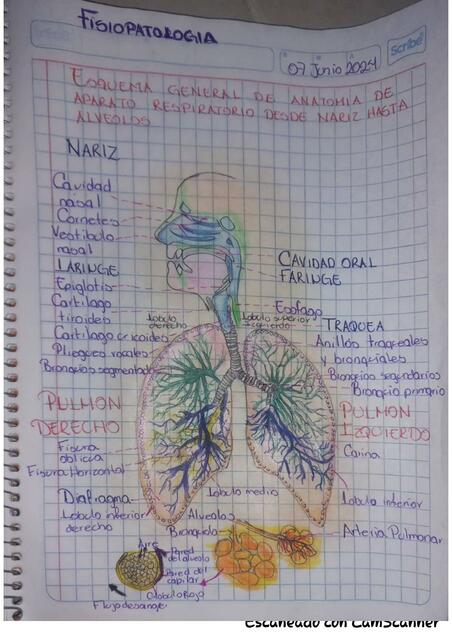 FISIOPATOLOGIA
07 Junio 2024
Scribe
ESQUEMA GENERAL DE ANATOMIA DE
APARATO RESPIRATORIO DESDE NARIZ HASTA
ALVEOLOS
NARIZ
Cavidad
nasal
Cornetes
Vestibulo
nasal
LARINGE
Epiglotis
Cartilago
tiroides
Cartilago cricoides
Pliegues vocales
Bronquios segmentado
CAVIDAD ORAL
FARINGE
Esofago
Lobulo
derecho
Lobulo superior
izquierdo
TRAQUEA
Anillos traqueales
y bronquiales
Bronquios segundarios
Bronquio primario
PULMON
DERECHO
PULMON
IZQUIERDO
Fisura
oblicua
Fisura Horizontal
Carina
Diafragma
Lobulo inferior
derecho
Lobulo medio
Lobulo inferior
Alveolos
Bronquiolo
Arteria Pulmonar
Aire
Pared
del alveolo
Pared del
capilar
Globulo Rojo
Flujo de sangre
Escaneado con CamScanner